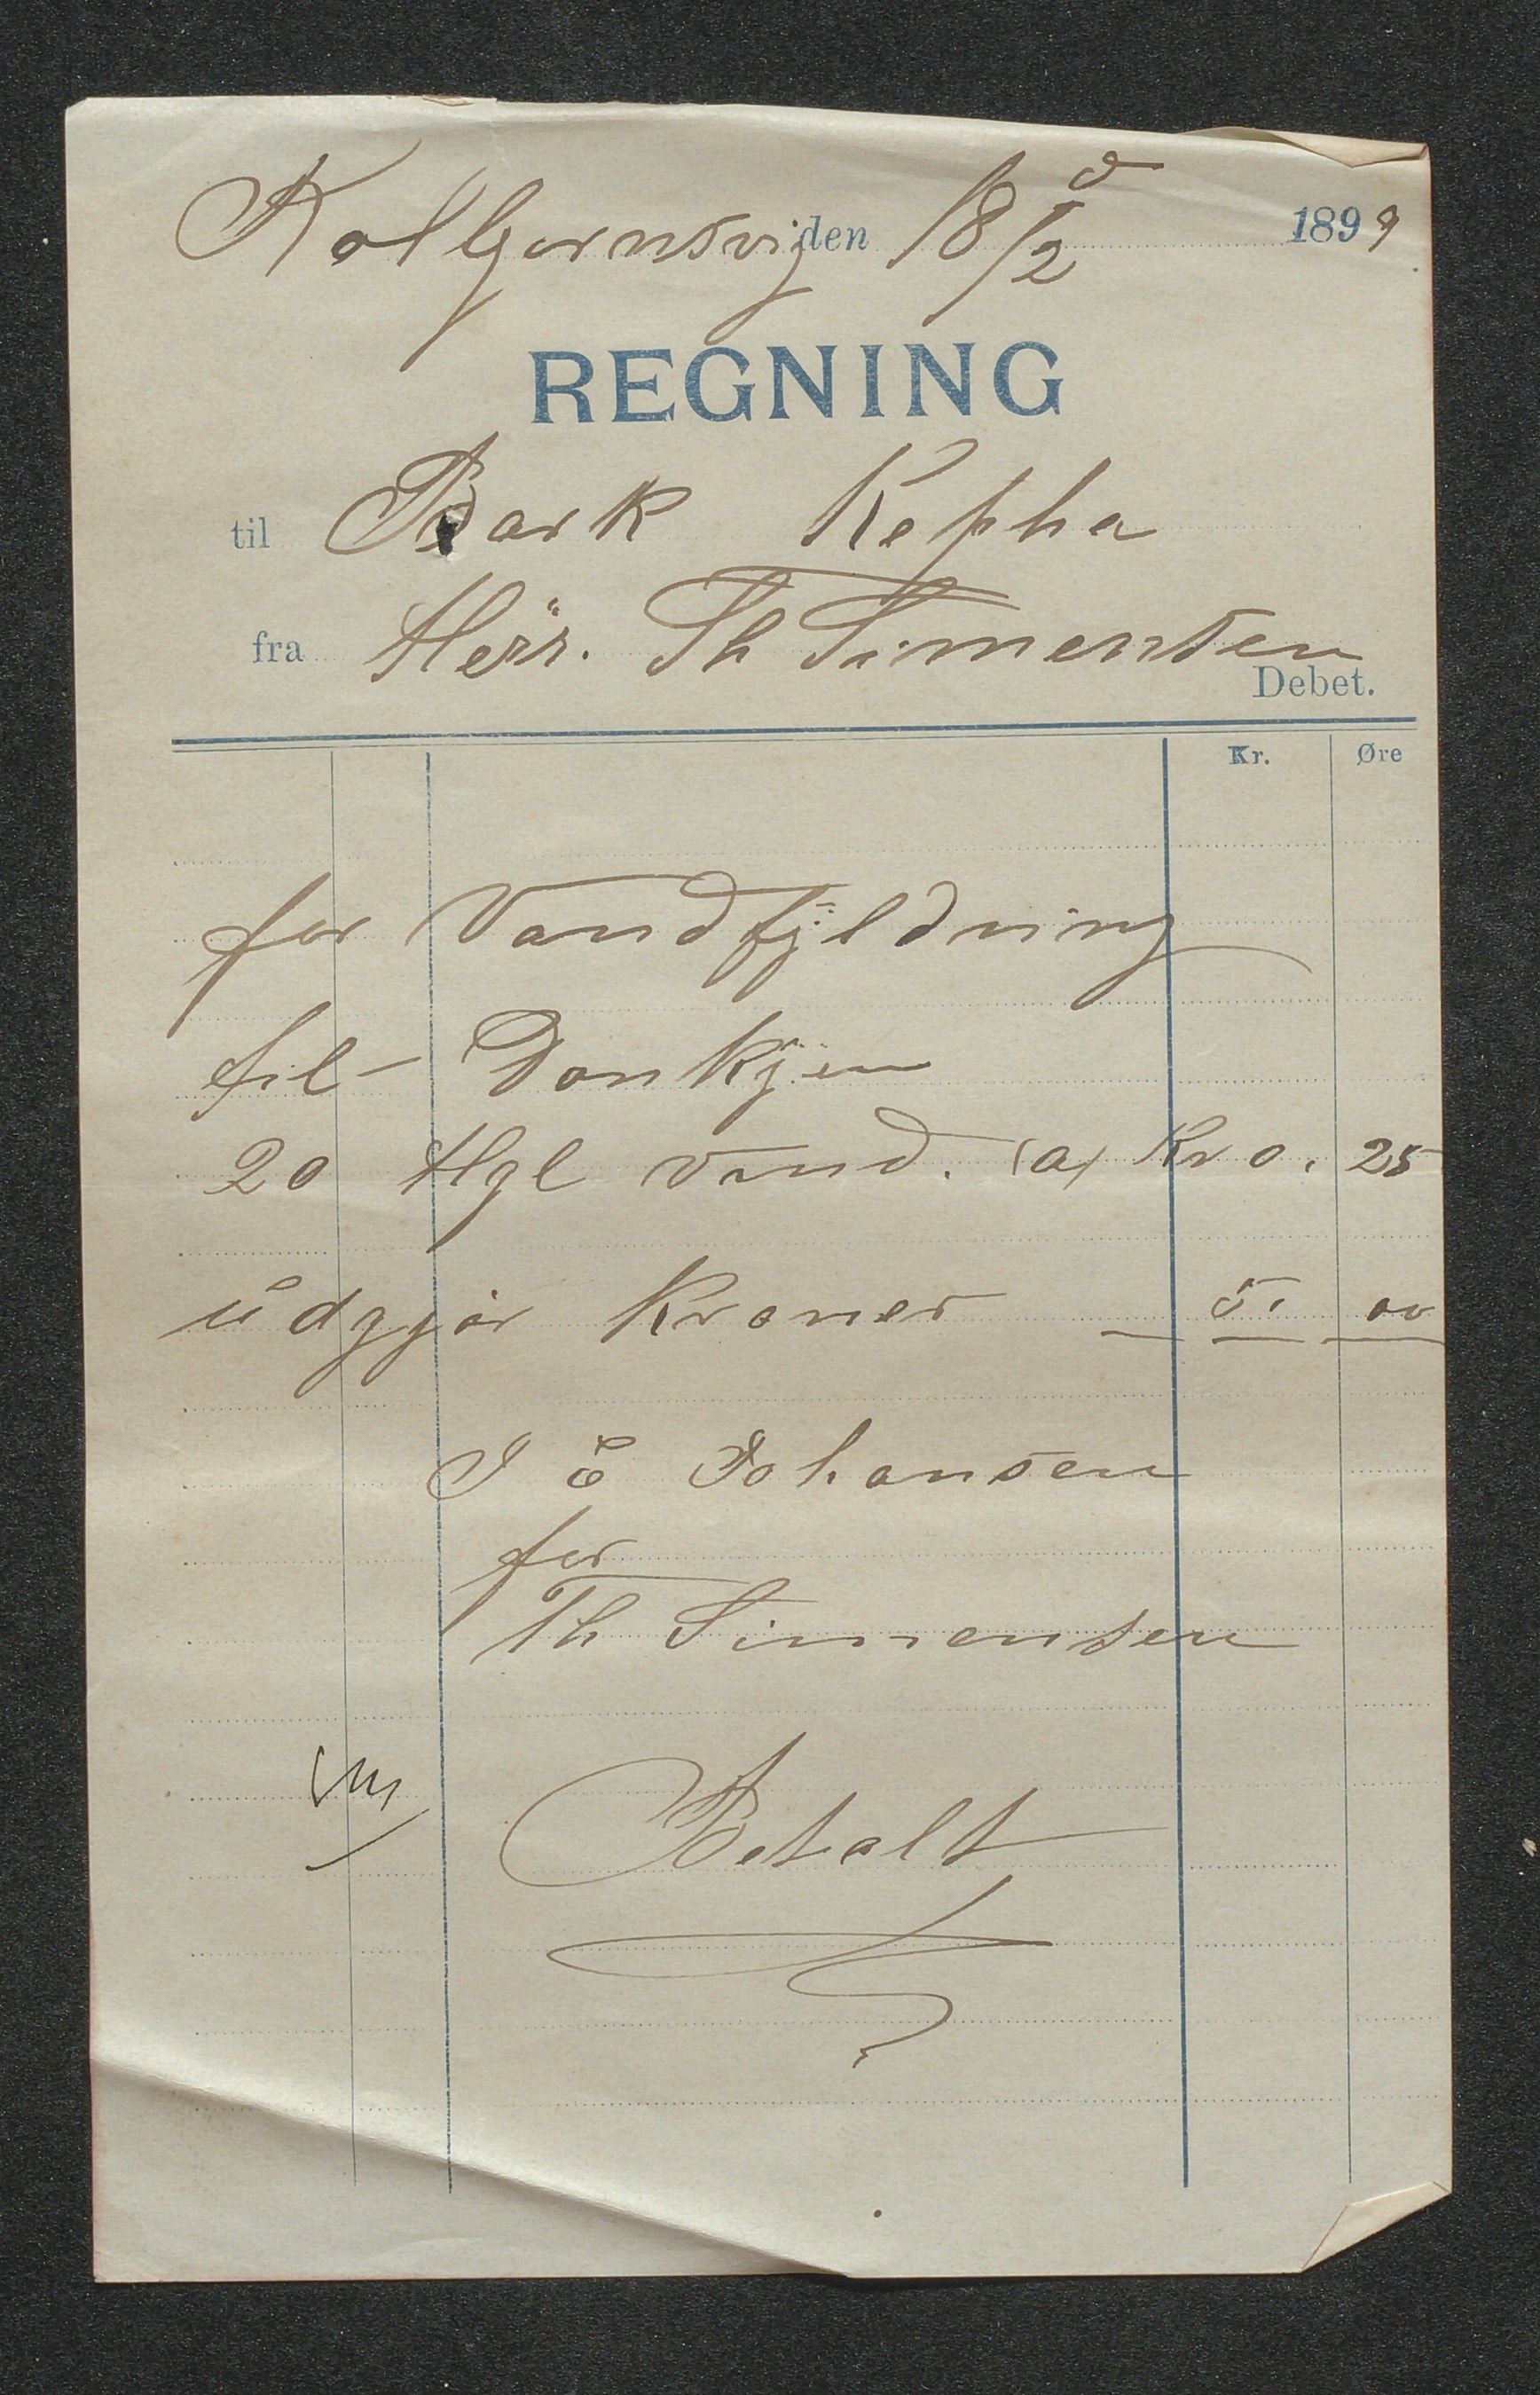 Kolbjornsvig den 18/2 d 1899
REGNING
til Bark Kepha
fra Herr. Th Simensen
Debet.
Kr. Øre
for Vandfyldning
til Donkjen
20 Hgl vand. (a) Kr 0. 25
udgjør Kroner 5. 00
J E Johansen
for
Th Simensen
Betalt